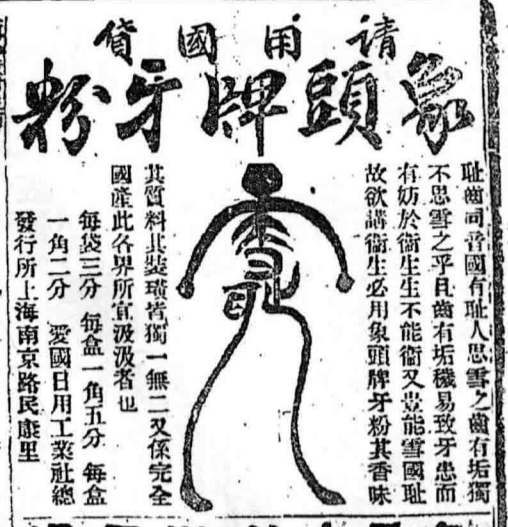 請用國貨
象頭牌牙粉
耻齒同音國有耻人思雪之齒有垢獨
不思雪之乎且齒有垢穢易致牙患而
有妨於衛生生不能衛又豈能雪國耻
故欲講衛生必用象頭牌牙粉其香味
雪耻
其質料其裝璜皆獨一無二又係完全
國產此各界所宜汲汲者也
每袋三分 每盒一角五分 每盒
一角二分 愛國日用工業社總
發行所上海南京路民康里